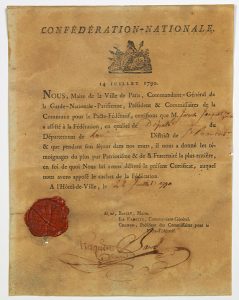 CONFÉDÉRATION-NATIONALE.
14 JUILLET 1790.
NOUS, Maire de la Ville de Paris, Commandant-Général de
la Garde-Nationale-Parisienne, Président & Commissaires de la
Commune pour le Pacte-Fédératif, certifions que M.
a assisté à la Fédération, en qualité de Député
du Département de District de
& que pendant son séjour dans nos murs, il nous a donné les
témoignages du plus pur Patriotisme & de la Fraternité la plus entière,
en foi de quoi Nous lui avons délivré le présent Certificat, auquel
nous avons apposé le cachet de la Fédération.
A l'Hôtel-de-Ville, ce Juillet 1790
BAILLY, Maire.
LA FAYETTE, Commandant-Général.
CHARON, Président des Commissaires pour le
Pacte-Fédératif.